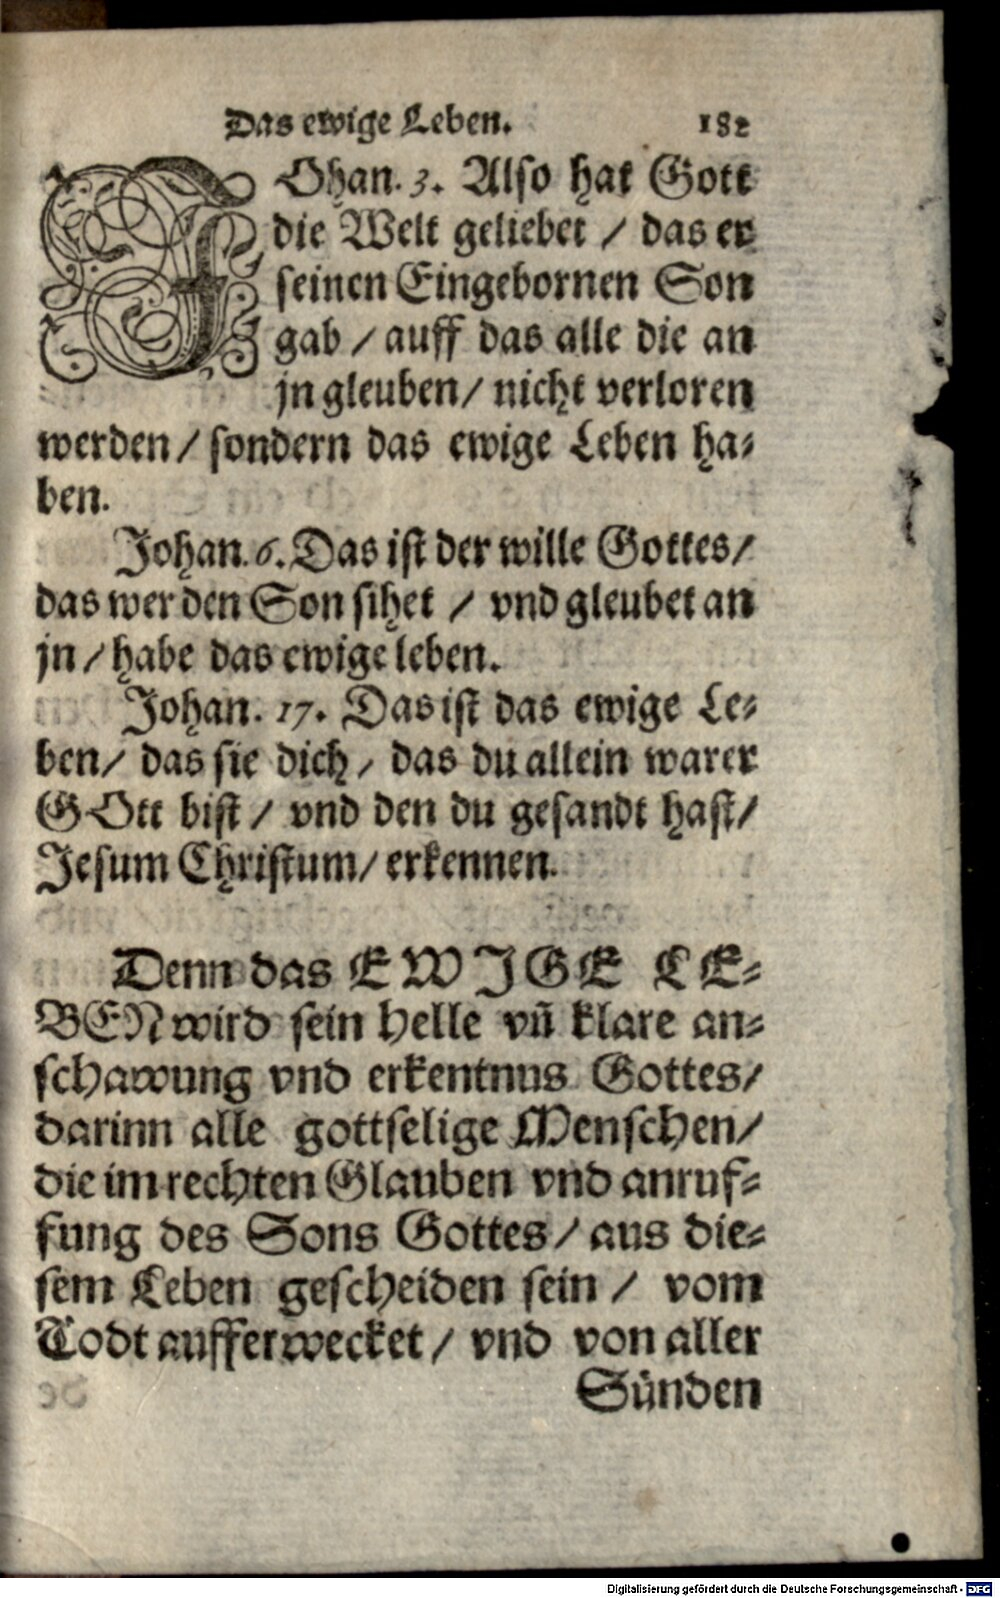 Das ewige Leben. 182
JOhan. 3. Also hat Gott
die Welt geliebet / das er
seinen Eingebornen Son
gab / auff das alle die an
jn gleuben / nicht verloren
werden / sondern das ewige Leben ha-
ben.
Johan. 6. Das ist der wille Gottes /
das wer den Son sihet / vnd gleubet an
jn / habe das ewige leben.
Johan. 17. Das ist das ewige Le-
ben / das sie dich / das du allein warer
GOtt bist / vnd den du gesandt hast /
Jesum Christum / erkennen.
Denn das EWJGE LE-
BEN wird sein helle vñ klare an-
schawung vnd erkentnus Gottes /
darinn alle gottselige Menschen /
die im rechten Glauben vnd anruf-
fung des Sons Gottes / aus die-
sem Leben gescheiden sein / vom
Todt aufferwecket / vnd von aller
Sünden
Digitalisierung gefördert durch die Deutsche Forschungsgemeinschaft - DFG